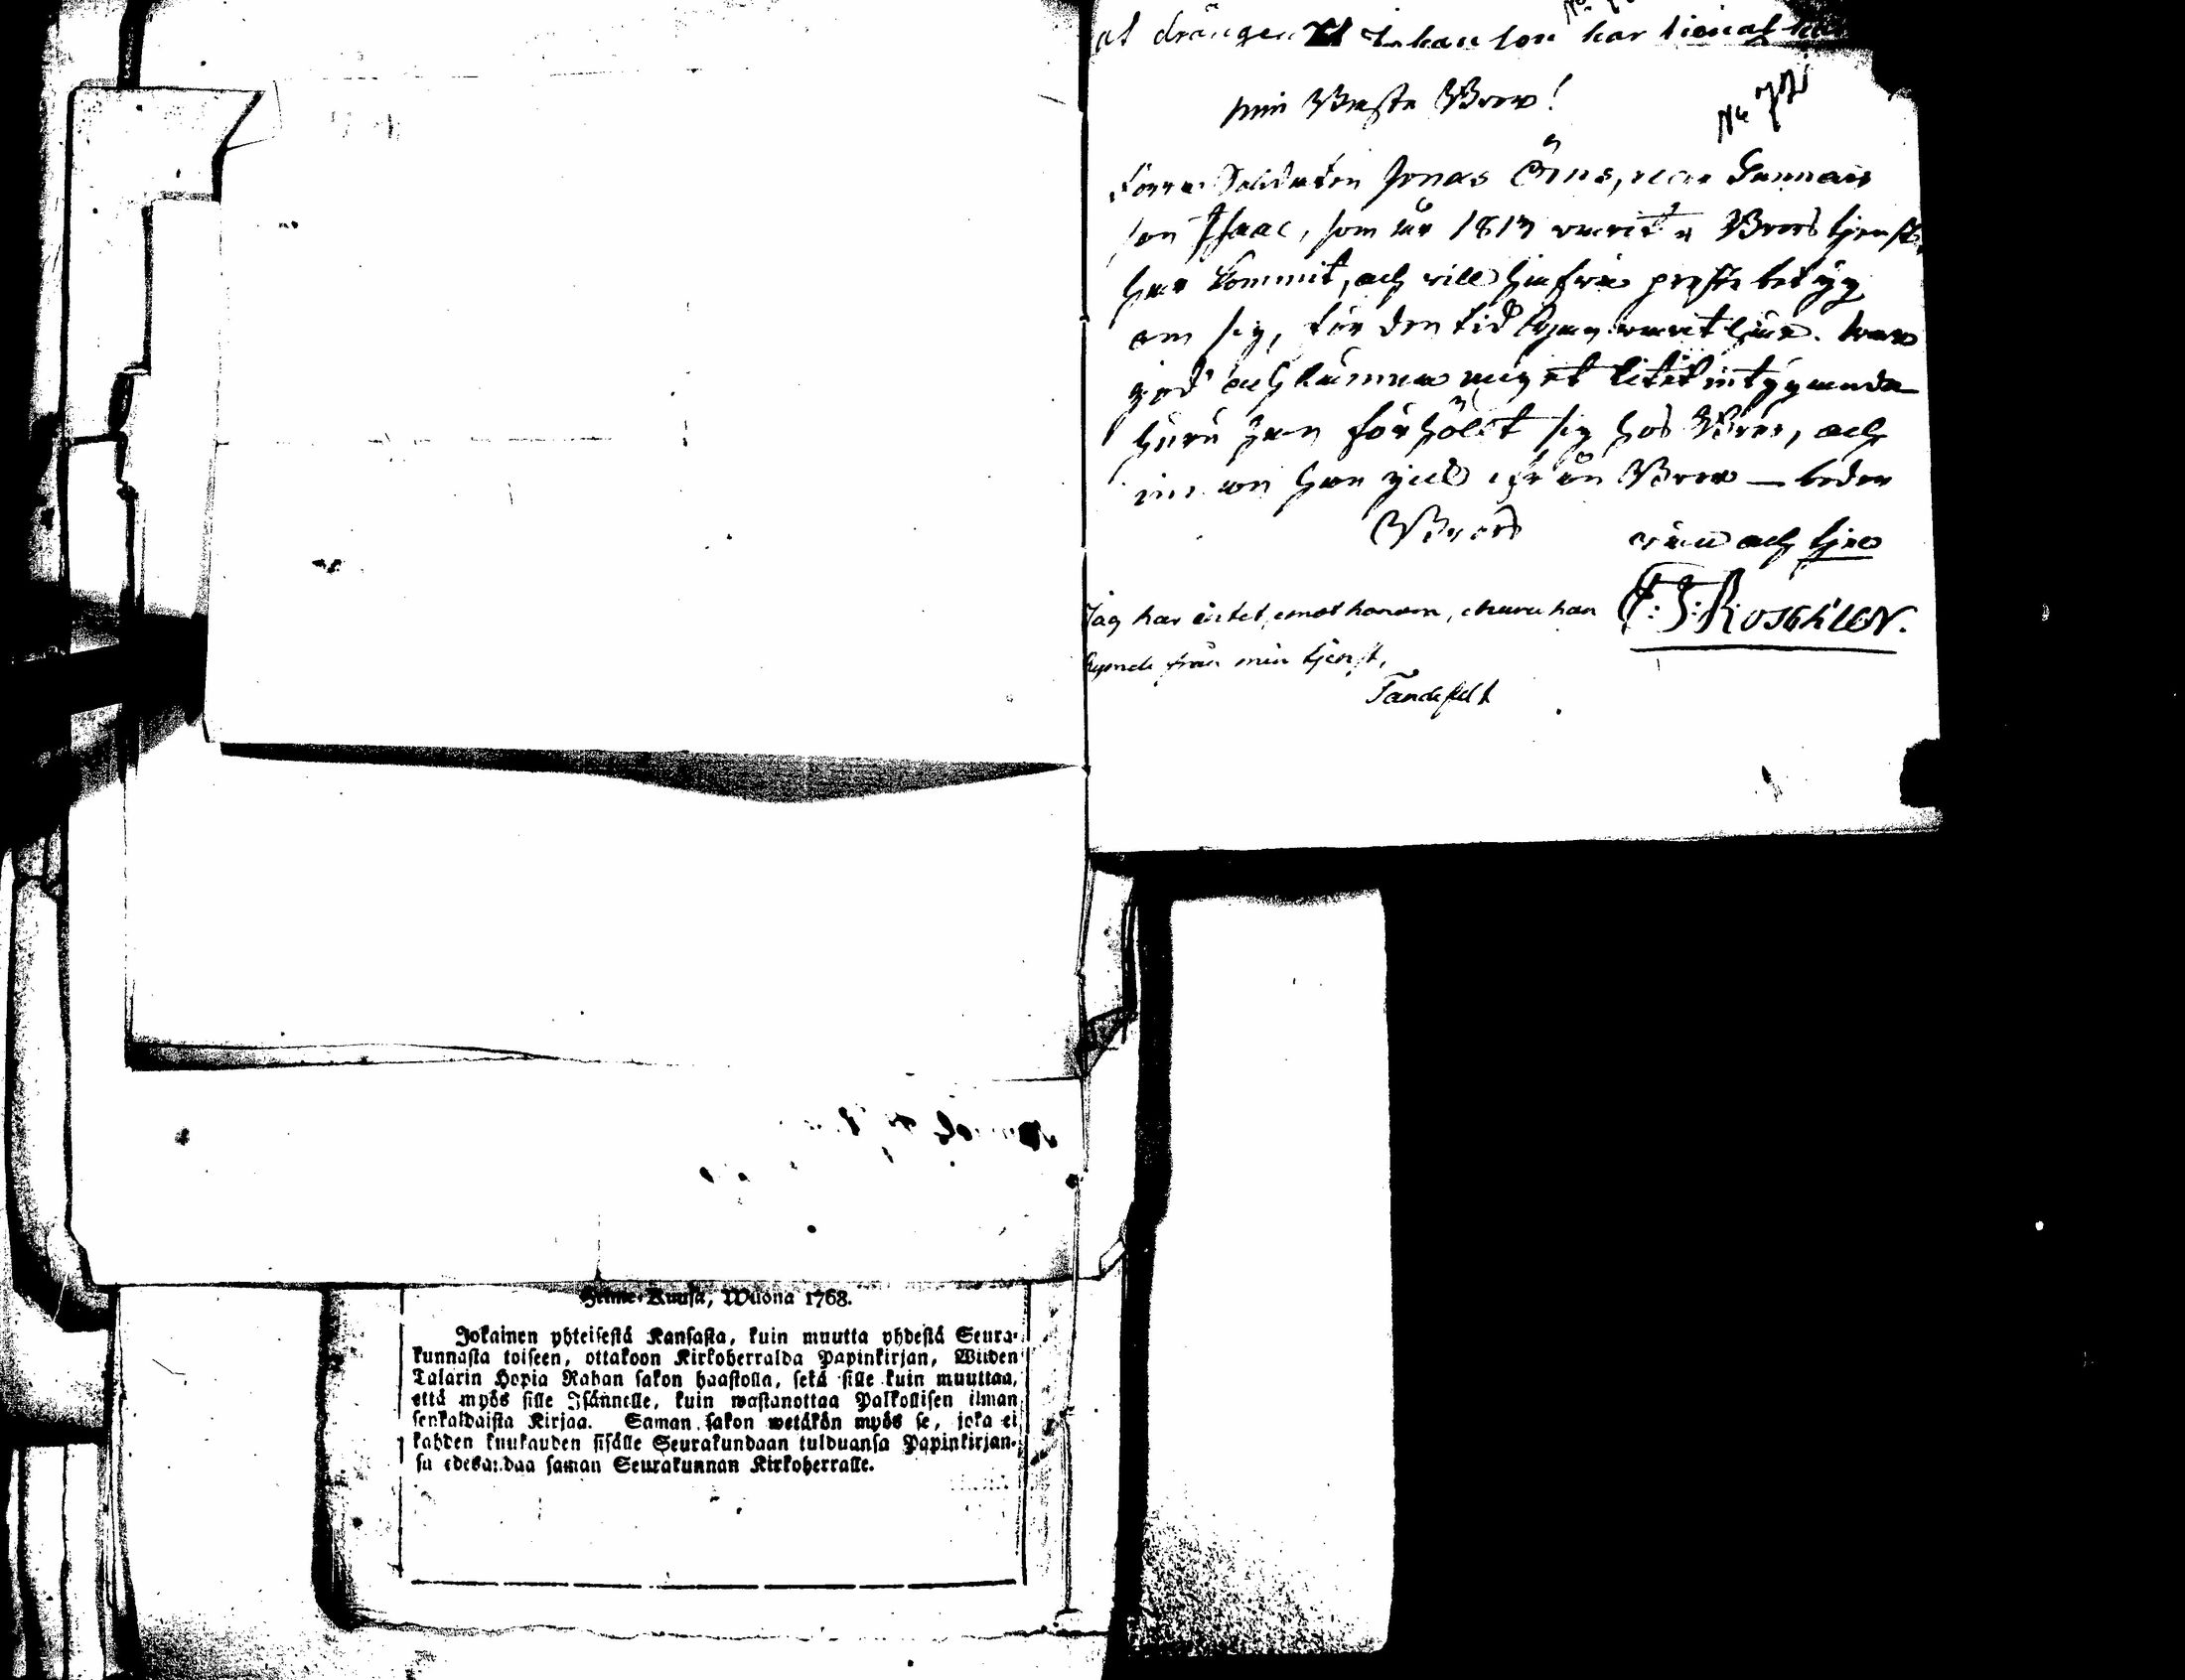 at drängen Johansson har tienat
Min Bästa Bror!
No 771
Förra Soldaten Jonas Öms,
son Isaac, som år 1813 varit i Brors tjenst,
har kommit, och vill hafva preste betyg
om sig, för den tid han varit här. War
god och lämna mig et litet intygande
huru han förhölt sig hos Bror, och
han gick ifrån Bror — beder
Brors vän och tjen
F: J: Roschier.
Jag har intet emot honom, churu han
rymde från min tjenst,
Tandefelt
Kuusa, Wuona 1768.
Jokainen yhteisestä Kansasta, kuin muutta yhdestä Seura-
kunnasta toiseen, ottakoon Kirkoherralda Papinkirjan, Wiiden
Talarin Hopia Rahan sakon haastolla, sekä sille kuin muuttaa,
että myös sille Isännelle, kuin wastanottaa Palkollisen ilman
senkaldaista Kirjaa. Saman sakon wetäkön myös se, joka ei
kahden kuukauden sisälle Seurakundaan tulduansa Papinkirjan-
sa edesandaa saman Seurakunnan Kirkoherralle.